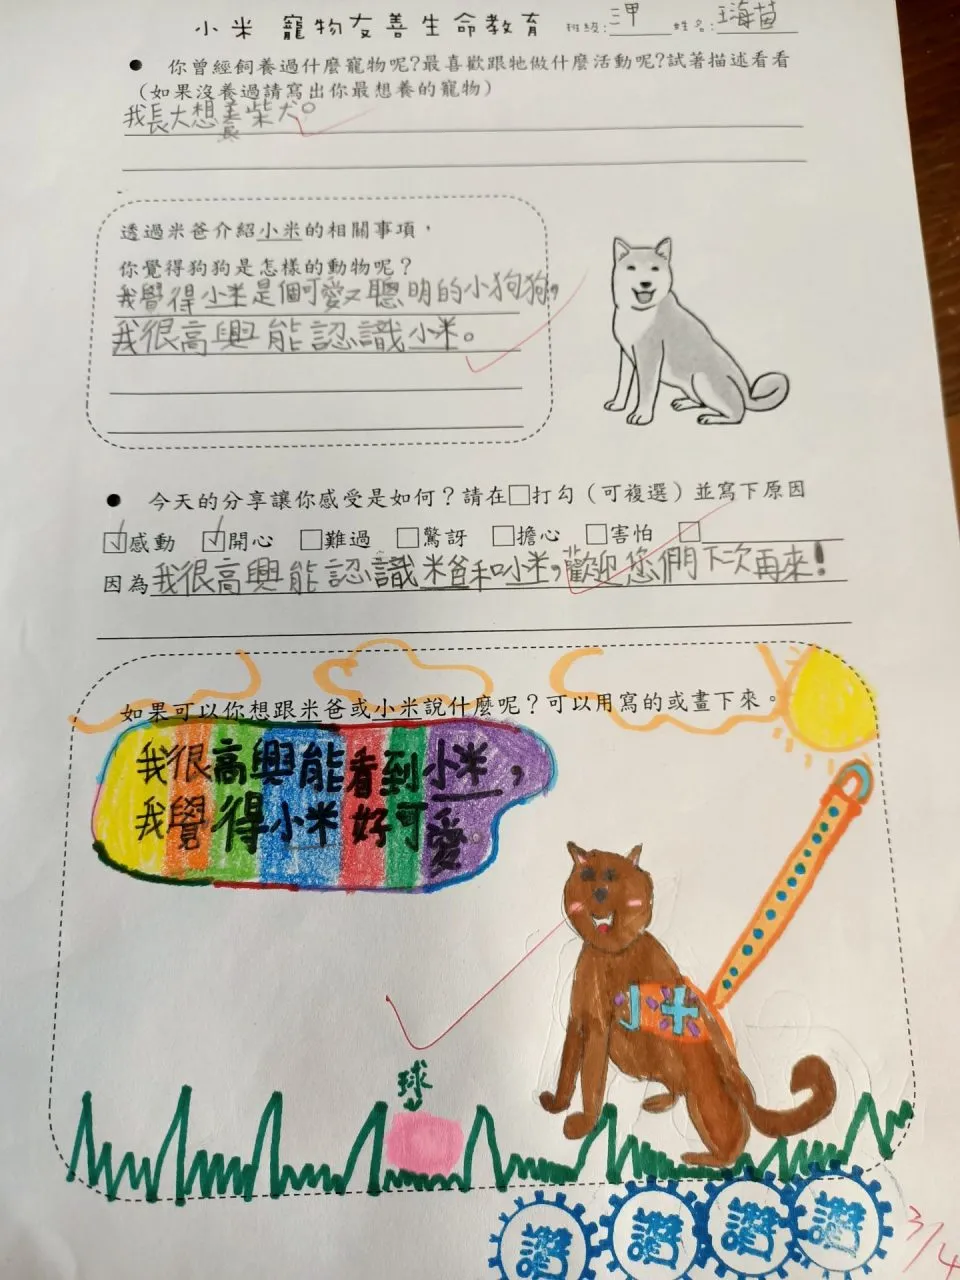 小米 寵物友善生命教育 班級:三甲 姓名:王海苗
● 你曾經飼養過什麼寵物呢?最喜歡跟牠做什麼活動呢?試著描述看看
(如果沒養過請寫出你最想養的寵物)
我長大想養柴犬。
透過米爸介紹小米的相關事項，
你覺得狗狗是怎樣的動物呢？
我覺得小米是個可愛又聰明的小狗狗，
我很高興能認識小米。
● 今天的分享讓你感受是如何？請在□打勾（可複選）並寫下原因
☑感動 ☑開心 □難過 □驚訝 □擔心 □害怕 □
因為我很高興能認識米爸和小米，歡迎您們下次再來！
如果可以你想跟米爸或小米說什麼呢？可以用寫的或畫下來。
我很高興能看到小米，
我覺得小米好可愛
小米
球
讚 讚 讚 讚
3/4